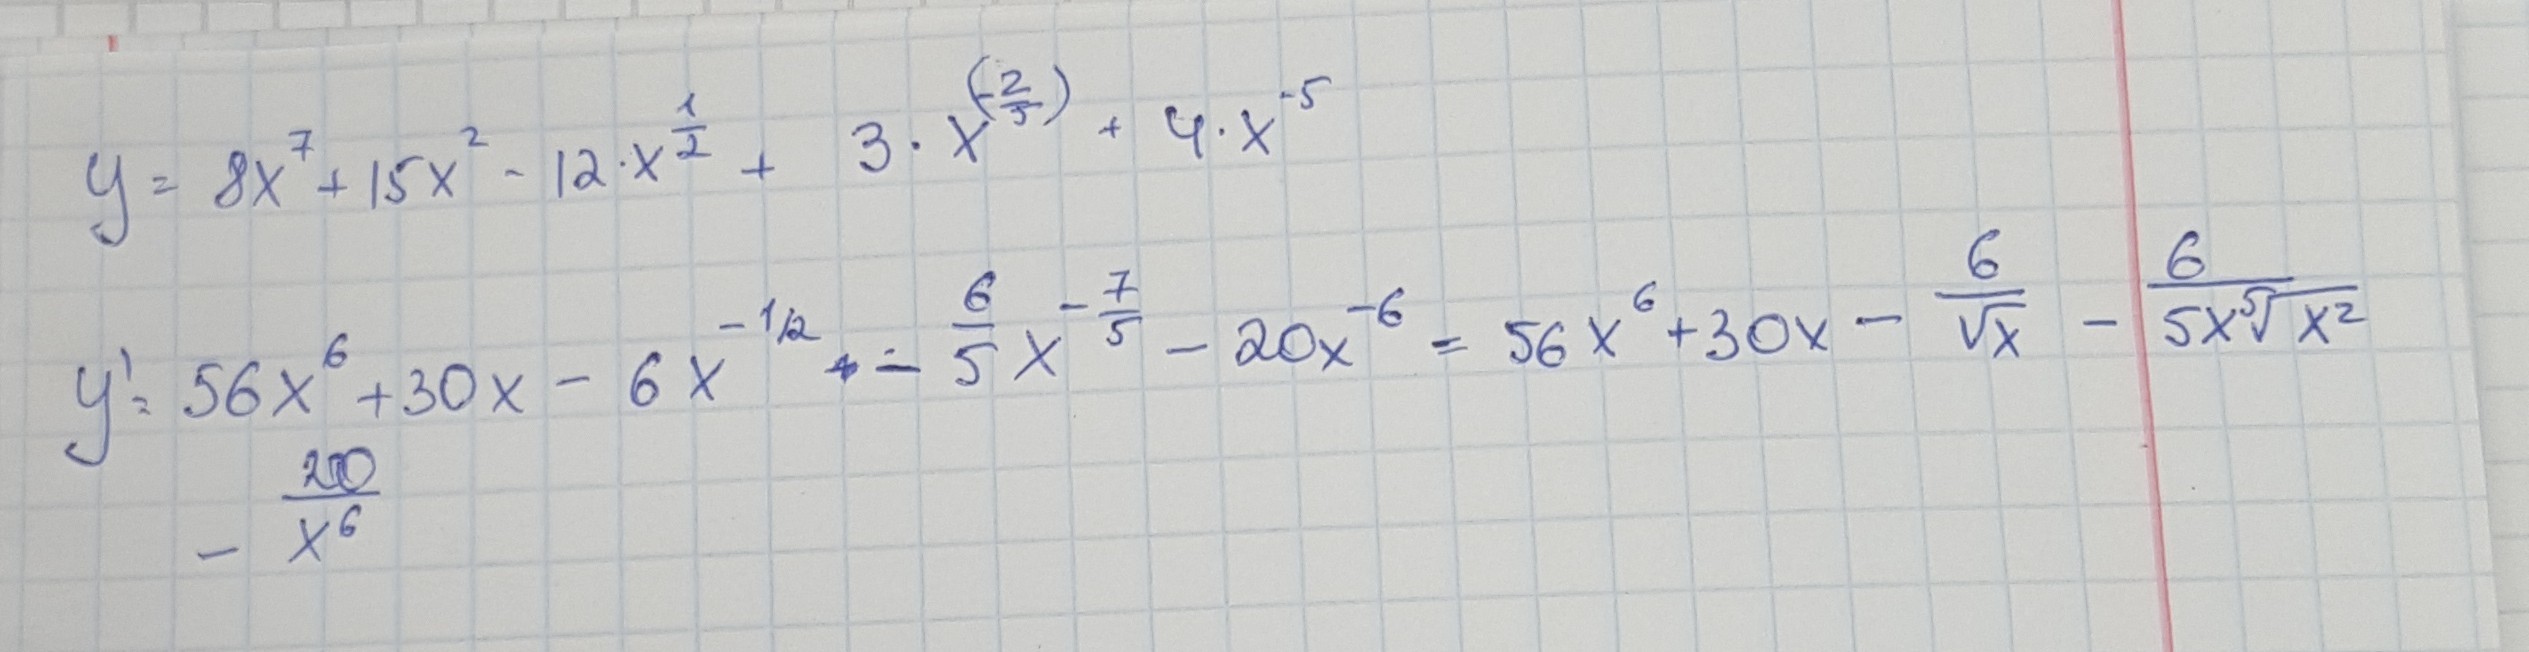 y = 8x⁷ + 15x² - 12·x^(1/2) + 3·x^(-2/5) + 4·x⁻⁵
y' = 56x⁶ + 30x - 6x^(-1/2) - 6/5 x^(-7/5) - 20x⁻⁶ = 56x⁶ + 30x - 6/√x - 6/(5x ⁵√x²)
- 20/x⁶